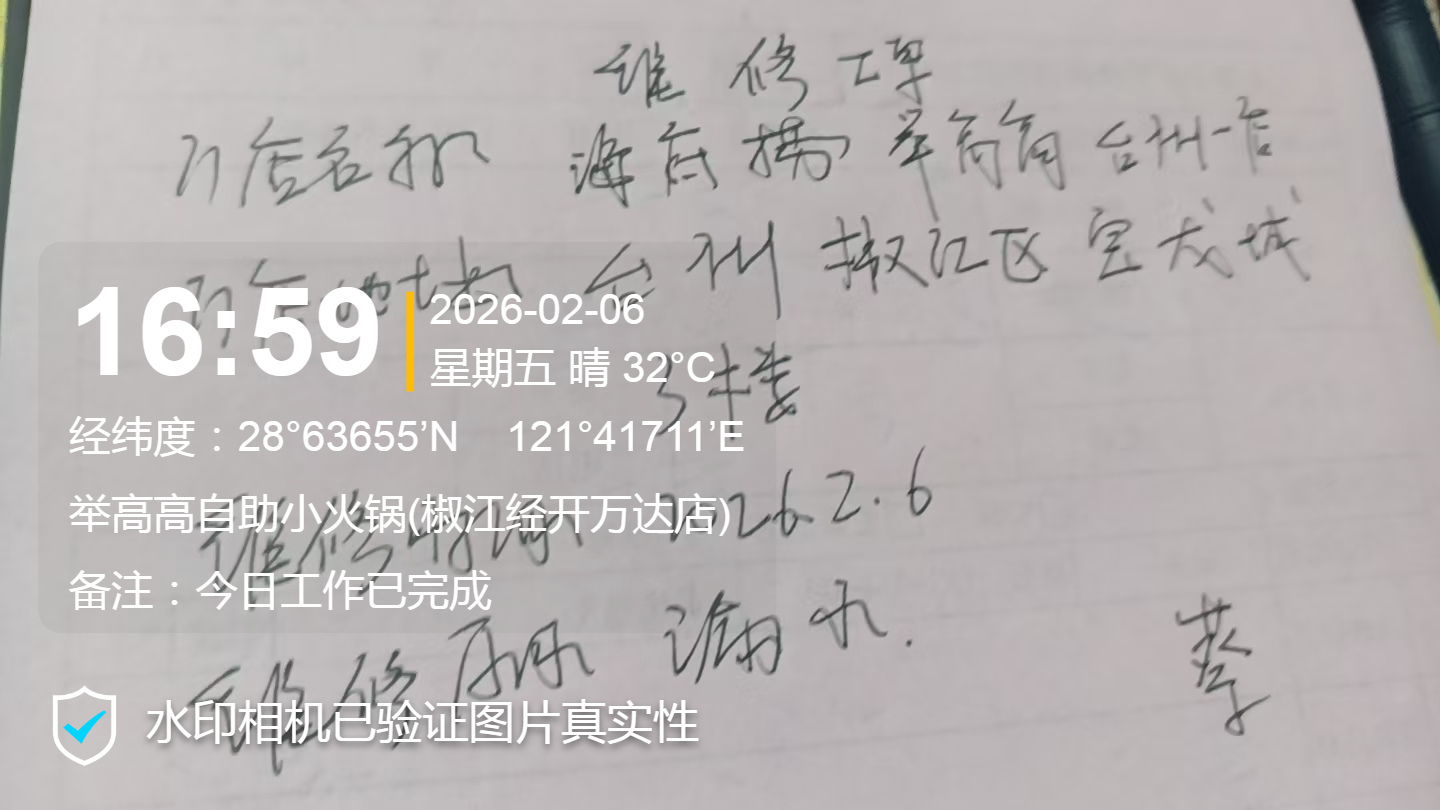 维修工单
门店名称 海底捞举高高台州一店
门店地址 台州椒江区宝龙城
3楼
维修时间 2026.2.6
维修原因 漏水.
蔡
16:59
2026-02-06
星期五 晴 32°C
经纬度：28°63655’N 121°41711’E
举高高自助小火锅(椒江经开万达店)
备注：今日工作已完成
水印相机已验证图片真实性